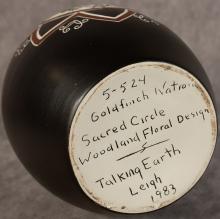 5-524
Goldfinch
Sacred Circle
Woodland Floral Design
Talking Earth
Leigh
1983